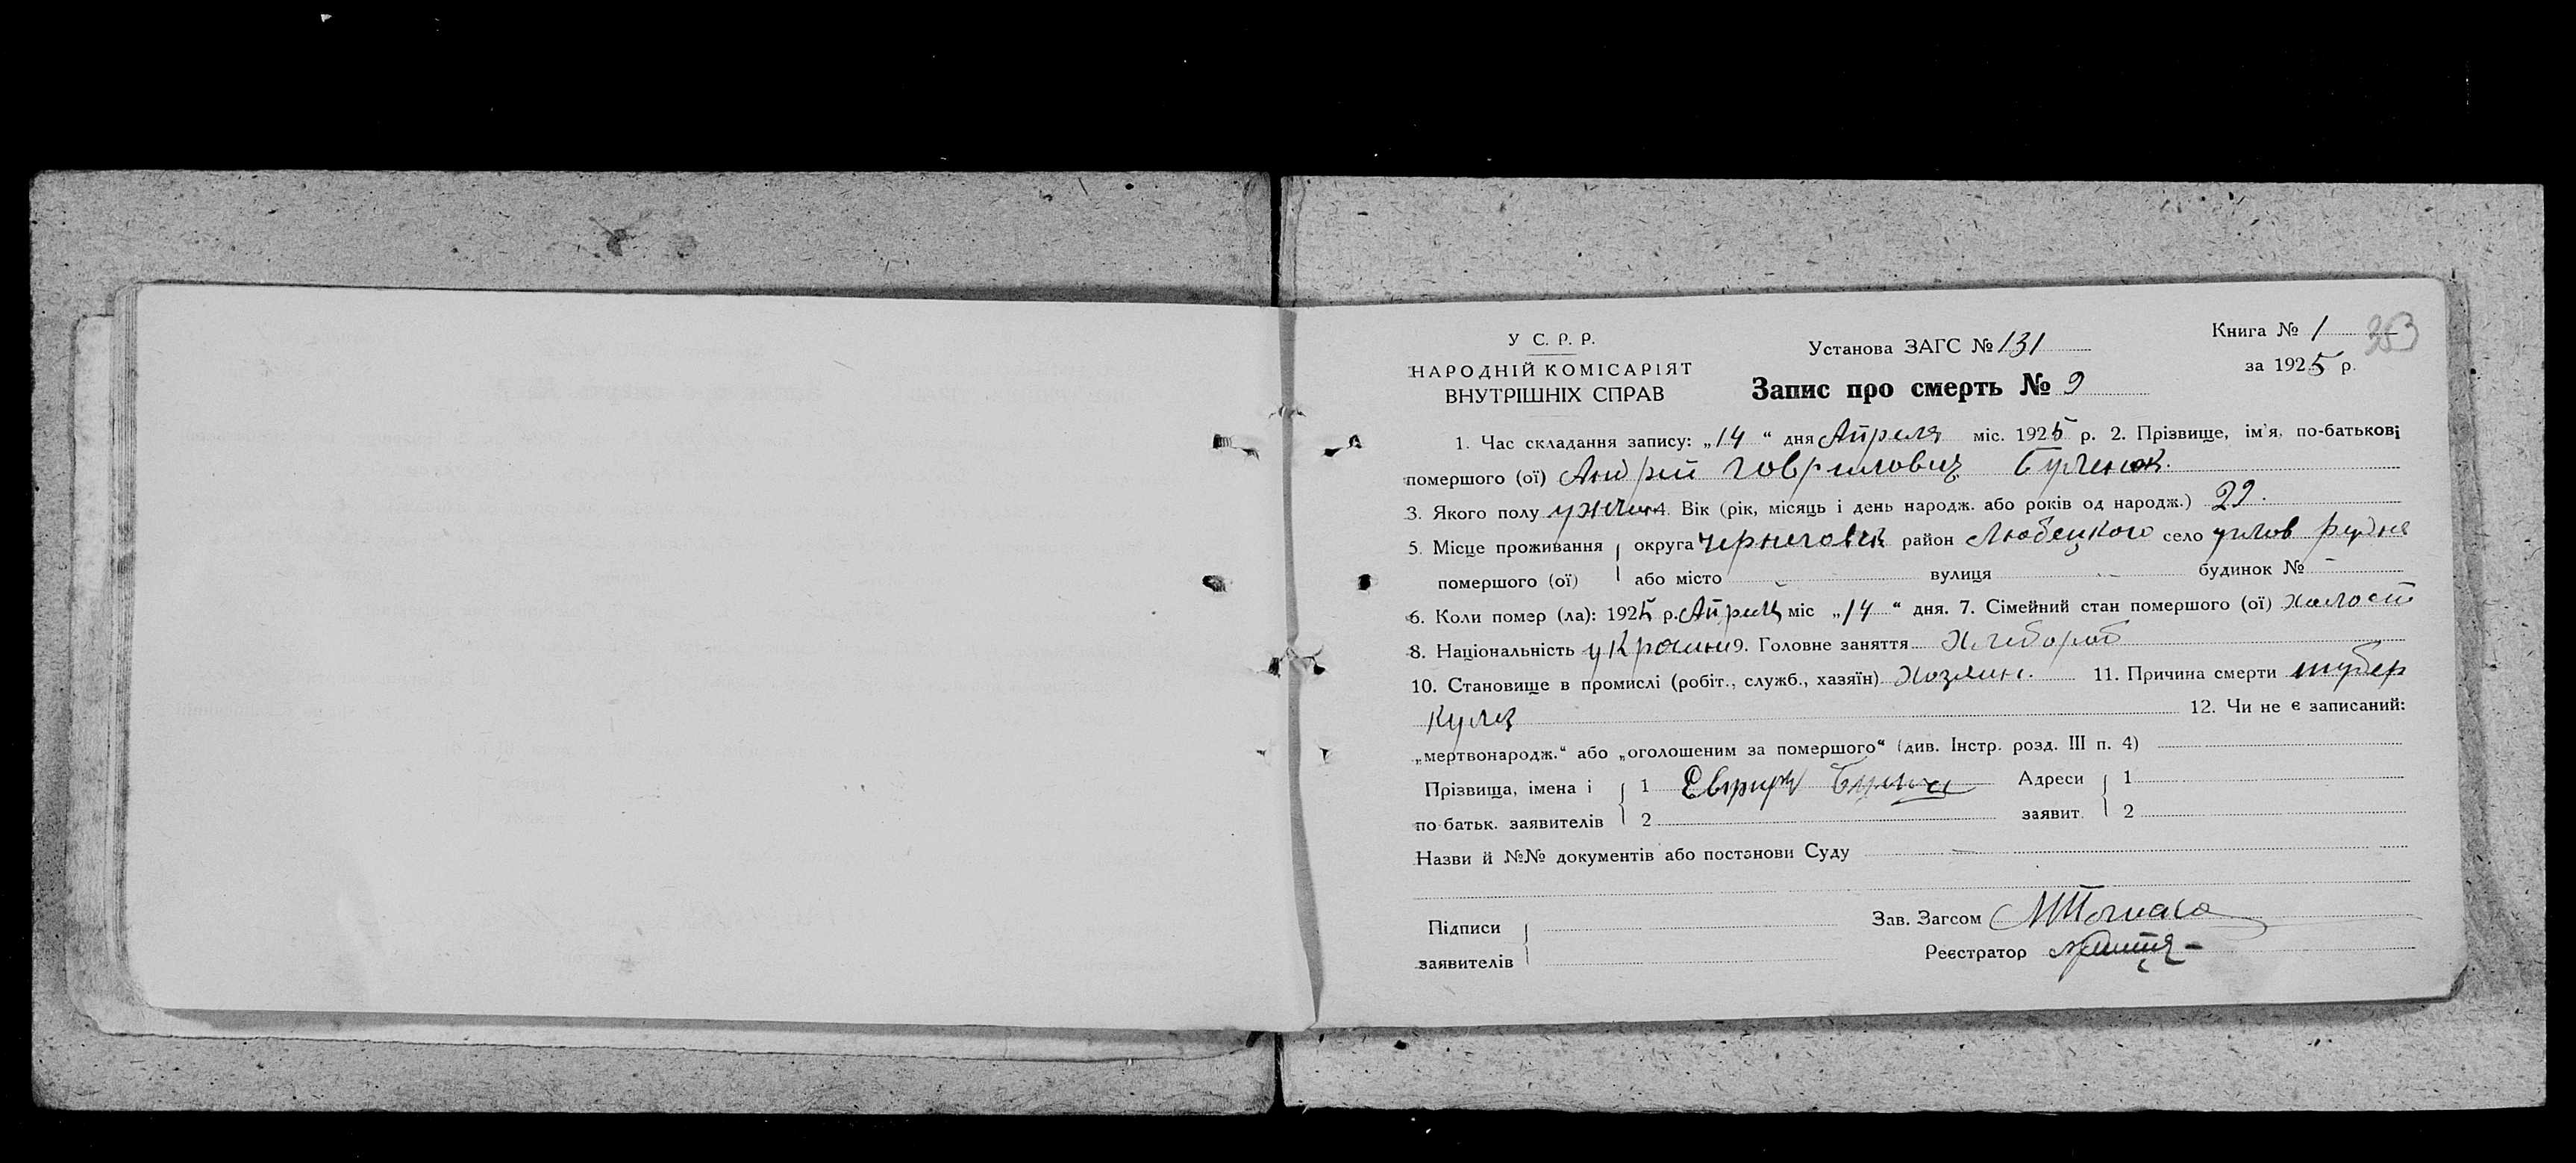 У С. Р. Р.
НАРОДНІЙ КОМІСАРІЯТ
ВНУТРІШНІХ СПРАВ
Установа ЗАГС № 131
Запис про смерть № 9
Книга № 1 353
за 1925 р.
1. Час складання запису: „14“ дня Апреля міс. 1925 р. 2. Прізвище, ім'я, по-батькові
помершого (ої) Андрій Гаврилович
3. Якого полу 4. Вік (рік, місяць і день народж. або років од народж.) 29.
5. Місце проживання округа район Любецкого село Рудня
помершого (ої) або місто вулиця будинок №
6. Коли помер (ла): 1925 р. міс „14“ дня. 7. Сімейний стан помершого (ої) холост
8. Національність 9. Головне заняття Хлебороб
10. Становище в промислі (робіт., служб., хазяїн) Хозяин. 11. Причина смерти тубер
кулез 12. Чи не є записаний:
„мертвонародж.“ або „оголошеним за помершого“ (див. Інстр. розд. III п. 4)
Прізвища, імена і 1 Адреси 1
по батьк. заявителів 2 заявит. 2
Назви й №№ документів або постанови Суду
Підписи Зав. Загсом
заявителів Реєстратор